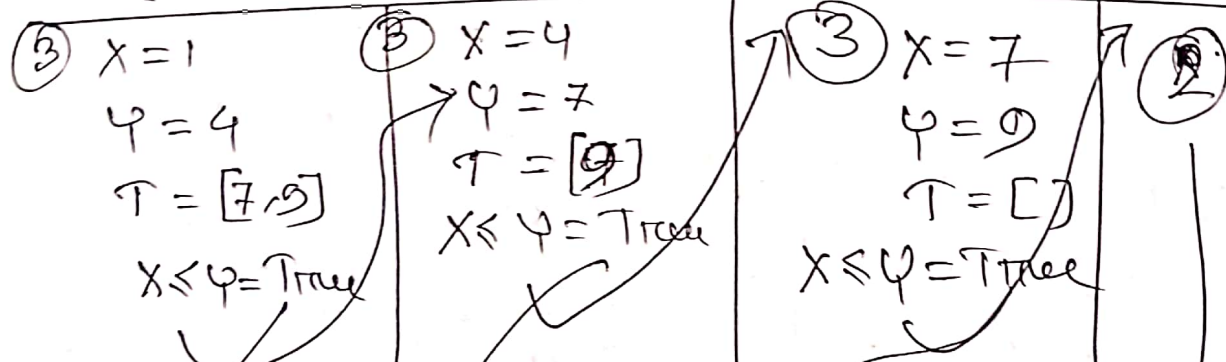 ③ X = 1
Y = 4
T = [7,9]
X ≤ Y = True
③ X = 4
Y = 7
T = [9]
X ≤ Y = True
③ X = 7
Y = 9
T = []
X ≤ Y = True
②